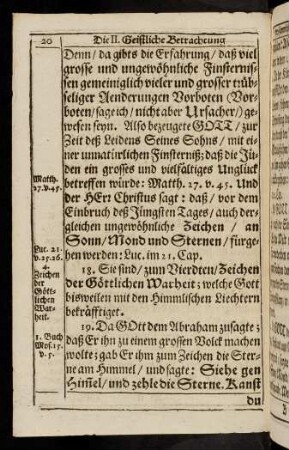 20 Die II. Geistliche Betrachtung
Denn / da gibts die Erfahrung / daß viel
grosse und ungewöhnliche Finsternis-
sen gemeiniglich vieler und grosser trüb-
seliger Aenderungen Vorboten (Vor-
boten / sage ich / nicht aber Ursacher /) ge-
wesen seyn. Also bezeugete GOTT / zur
Zeit deß Leidens Seines Sohns / mit ei-
ner unnatürlichen Finsterniß; daß die Jü-
den ein grosses und vielfältiges Unglück
betreffen würde: Matth. 27. v. 45. Und
der HErr Christus sagt: daß / vor dem
Einbruch deß Jüngsten Tages / auch der-
gleichen ungewöhnliche Zeichen / an
Sonn / Mond und Sternen / fürge-
hen werden: Luc. im 21. Cap.
18. Sie sind / zum Vierdten / Zeichen
der Göttlichen Warheit; welche Gott
bisweilen mit den Himmlischen Liechtern
bekräfftiget.
19. Da GOtt dem Abraham zusagte;
daß Er ihn zu einem grossen Volck machen
wolte; gab Er ihm zum Zeichen die Ster-
ne am Himmel / und sagte: Siehe gen
Him̃el / und zehle die Sterne. Kanst
du
Matth.
27. v. 45.
Luc. 21.
v. 25. 26.
4.
Zeichen
der
Gött-
lichen
War-
heit.
1. Buch
Mos. 15.
v. 5.